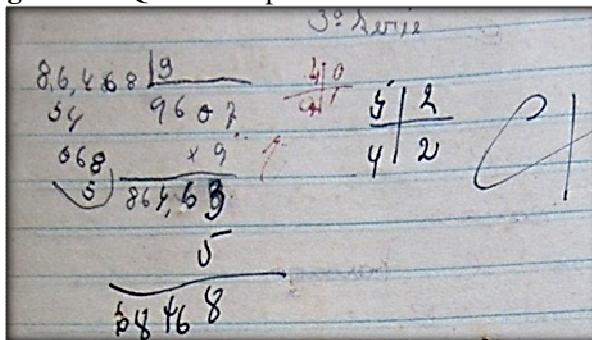 3ª Serie
86,468 9
54 9607
068 × 9
5 864,63
5
8468
5 2
4 2